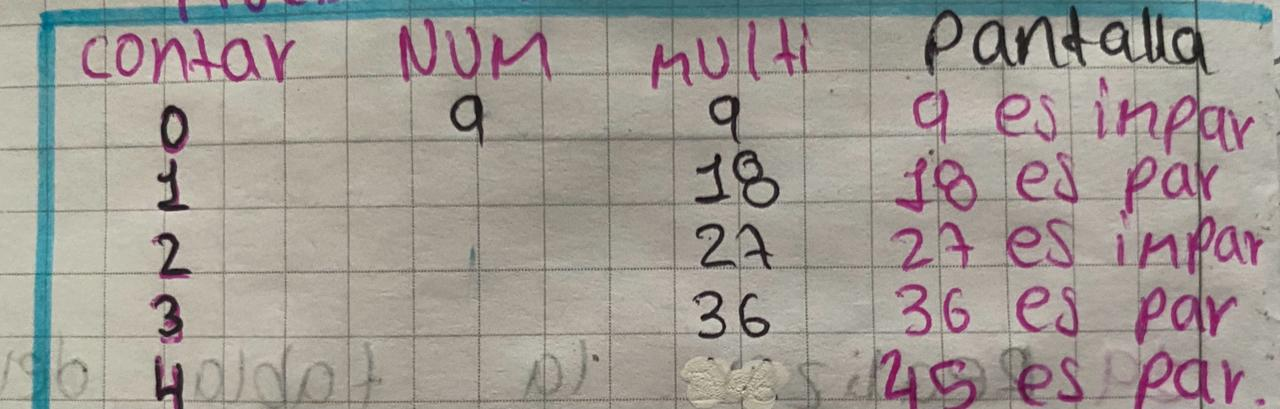 contar NUM MULTI Pantalla
0 9 9 9 es inpar
1 18 18 es par
2 27 27 es inpar
3 36 36 es par
4 45 es par.